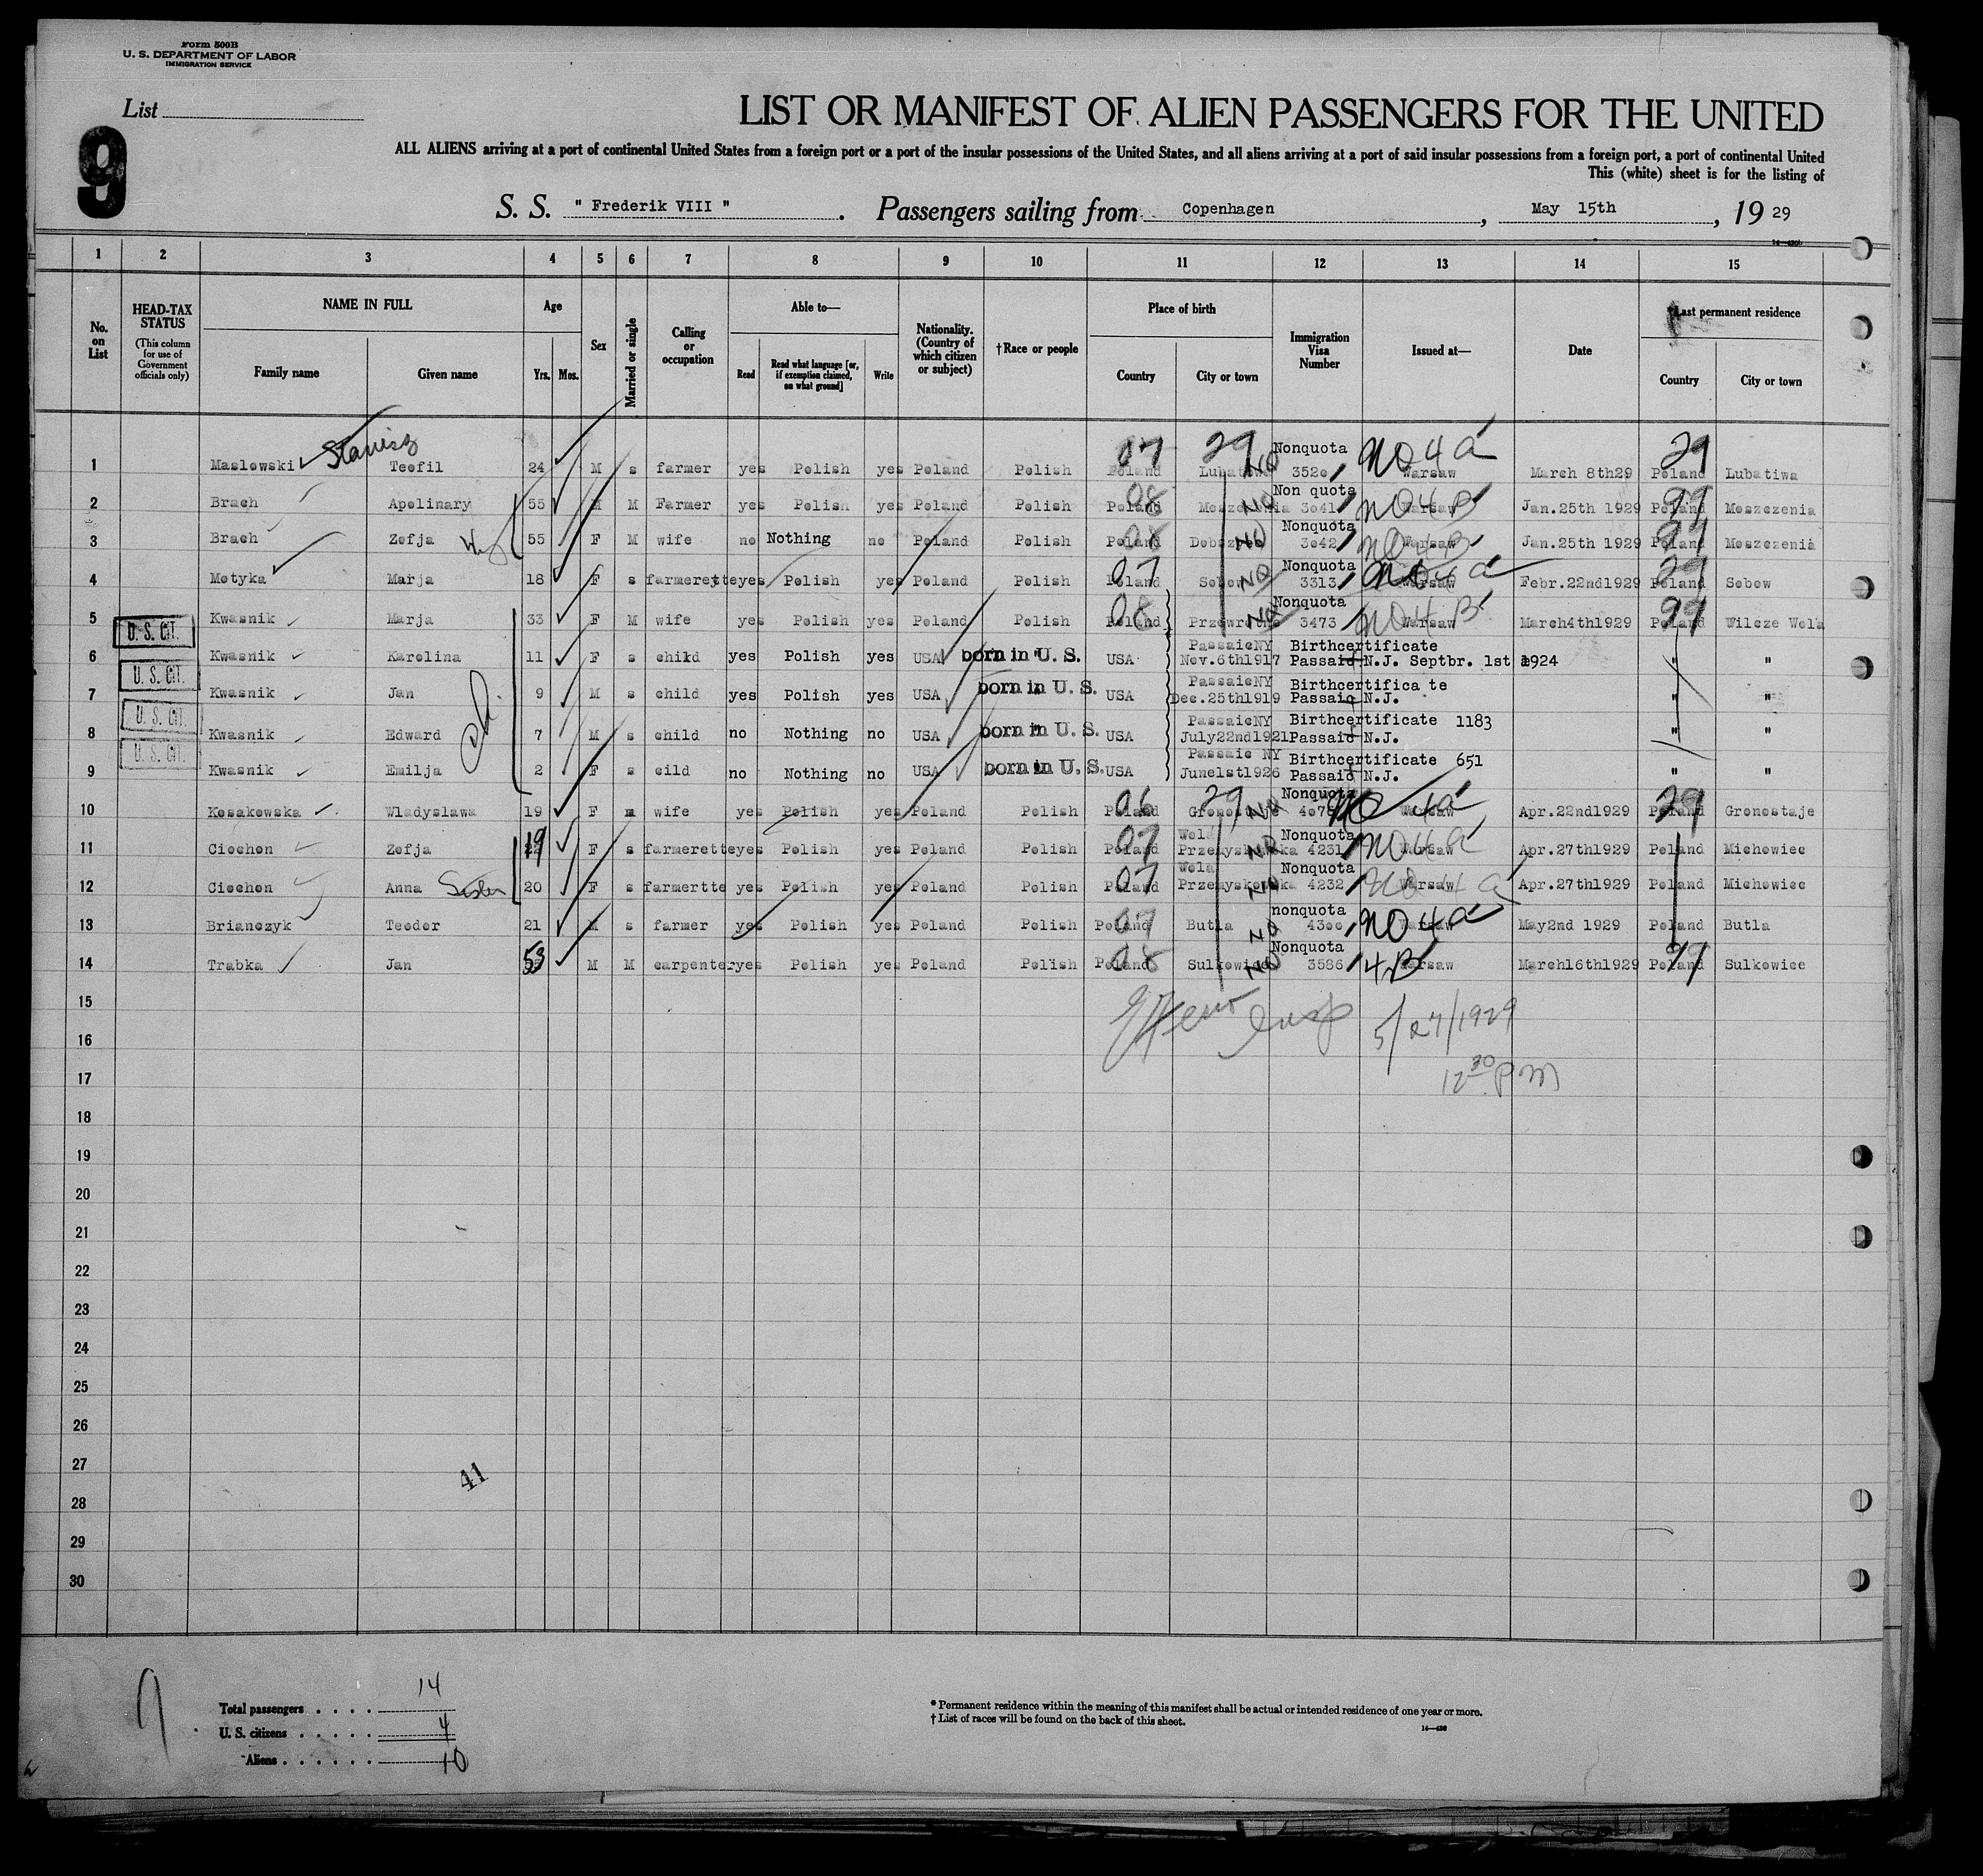 Form 500B
U. S. DEPARTMENT OF LABOR
IMMIGRATION SERVICE
List
9
LIST OR MANIFEST OF ALIEN PASSENGERS FOR THE UNITED
ALL ALIENS arriving at a port of continental United States from a foreign port or a port of the insular possessions of the United States, and all aliens arriving at a port of said insular possessions from a foreign port, a port of continental United
This (white) sheet is for the listing of
S. S. " Frederik VIII " . Passengers sailing from Copenhagen , May 15th , 19 29
1 2 3 4 5 6 7 8 9 10 11 12 13 14 15
No. on List
HEAD-TAX STATUS (This column for use of Government officials only)
NAME IN FULL Family name Given name
Age Yrs. Mos.
Sex
Married or single
Calling or occupation
Able to— Read Read what language [or, if exemption claimed, on what ground] Write
Nationality. (Country of which citizen or subject)
†Race or people
Place of birth Country City or town
Immigration Visa Number
Issued at—
Date
*Last permanent residence Country City or town
Stanisz
1 Maslowski Teofil 24 M s farmer yes Polish yes Poland Polish 07 Poland 29 Lubatiwa NO Nonquota 3520 NO 4 a Warsaw March 8th29 29 Poland Lubatiwa
2 Brach Apolinary 55 M M Farmer yes Polish yes Poland Polish 08 Poland Moszczenia NO Non quota 3041 NO 4 B Warsaw Jan.25th 1929 99 Poland Moszczenia
3 Brach Zofja Wf 55 F M wife no Nothing no Poland Polish 08 Poland NO Nonquota 3042 NO 4 B Warsaw Jan.25th 1929 99 Poland Moszczenia
4 Motyka Marja 18 F s farmerette yes Polish yes Poland Polish 07 Poland Sobow NO Nonquota 3313 NO 4 a Warsaw Febr.22nd1929 29 Poland Sobow
5 Kwasnik Marja 33 F M wife yes Polish yes Poland Polish 08 Poland NO Nonquota 3473 NO 4 B Warsaw March4th1929 99 Poland Wilcze Wola
U. S. CIT.
6 Kwasnik Karolina 11 F s child yes Polish yes USA born in U. S. USA PassaicNY Nov.6th1917 Birthcertificate Passaic N.J. Septbr. 1st 1924 " "
U. S. CIT.
7 Kwasnik Jan 9 M s child yes Polish yes USA born in U. S. USA PassaicNY Dec.25th1919 Birthcertifica te Passaic N.J. "
U. S. CIT.
8 Kwasnik Edward 7 M s child no Nothing no USA born in U. S. USA PassaicNY July22nd1921 Birthcertificate 1183 Passaic N.J. " "
U. S. CIT.
9 Kwasnik Emilja 2 F s cild no Nothing no USA born in U. S. USA Passaic NY June1st1926 Birthcertificate 651 Passaic N.J. " "
10 Kosakowska Wladyslawa 19 F m wife yes Polish yes Poland Polish 06 Poland 29 Gronostaje NO Nonquota NO 4 a Warsaw Apr.22nd1929 29 Poland Gronostaje
11 Ciochon Zofja 19 F s farmerette yes Polish yes Poland Polish 07 Poland Wola Przemyskowska NO Nonquota 4231 NO 4 a Warsaw Apr.27th1929 Poland Michowiec
12 Ciochon Anna Sister 20 F s farmertte yes Polish yes Poland Polish 07 Poland Wola Przemyskowska NO Nonquota 4232 NO 4 a Warsaw Apr.27th1929 Poland Michowiec
13 Brianczyk Teodor 21 M s farmer yes Polish yes Poland Polish 07 Poland Butla NO nonquota 4300 NO 4 a Warsaw May2nd 1929 Poland Butla
14 Trabka Jan 53 M M carpenter yes Polish yes Poland Polish 08 Poland Sulkowice NO Nonquota 3586 4 B Warsaw March16th1929 99 Poland Sulkowice
15
Insp 5/27/1929
16
17 12 30 PM
18
19
20
21
22
23
24
25
26
27 41
28
29
30
9
Total passengers . . . . 14
U. S. citizens . . . . . 4
Aliens . . . . . . 10
* Permanent residence within the meaning of this manifest shall be actual or intended residence of one year or more.
† List of races will be found on the back of this sheet.
14—430